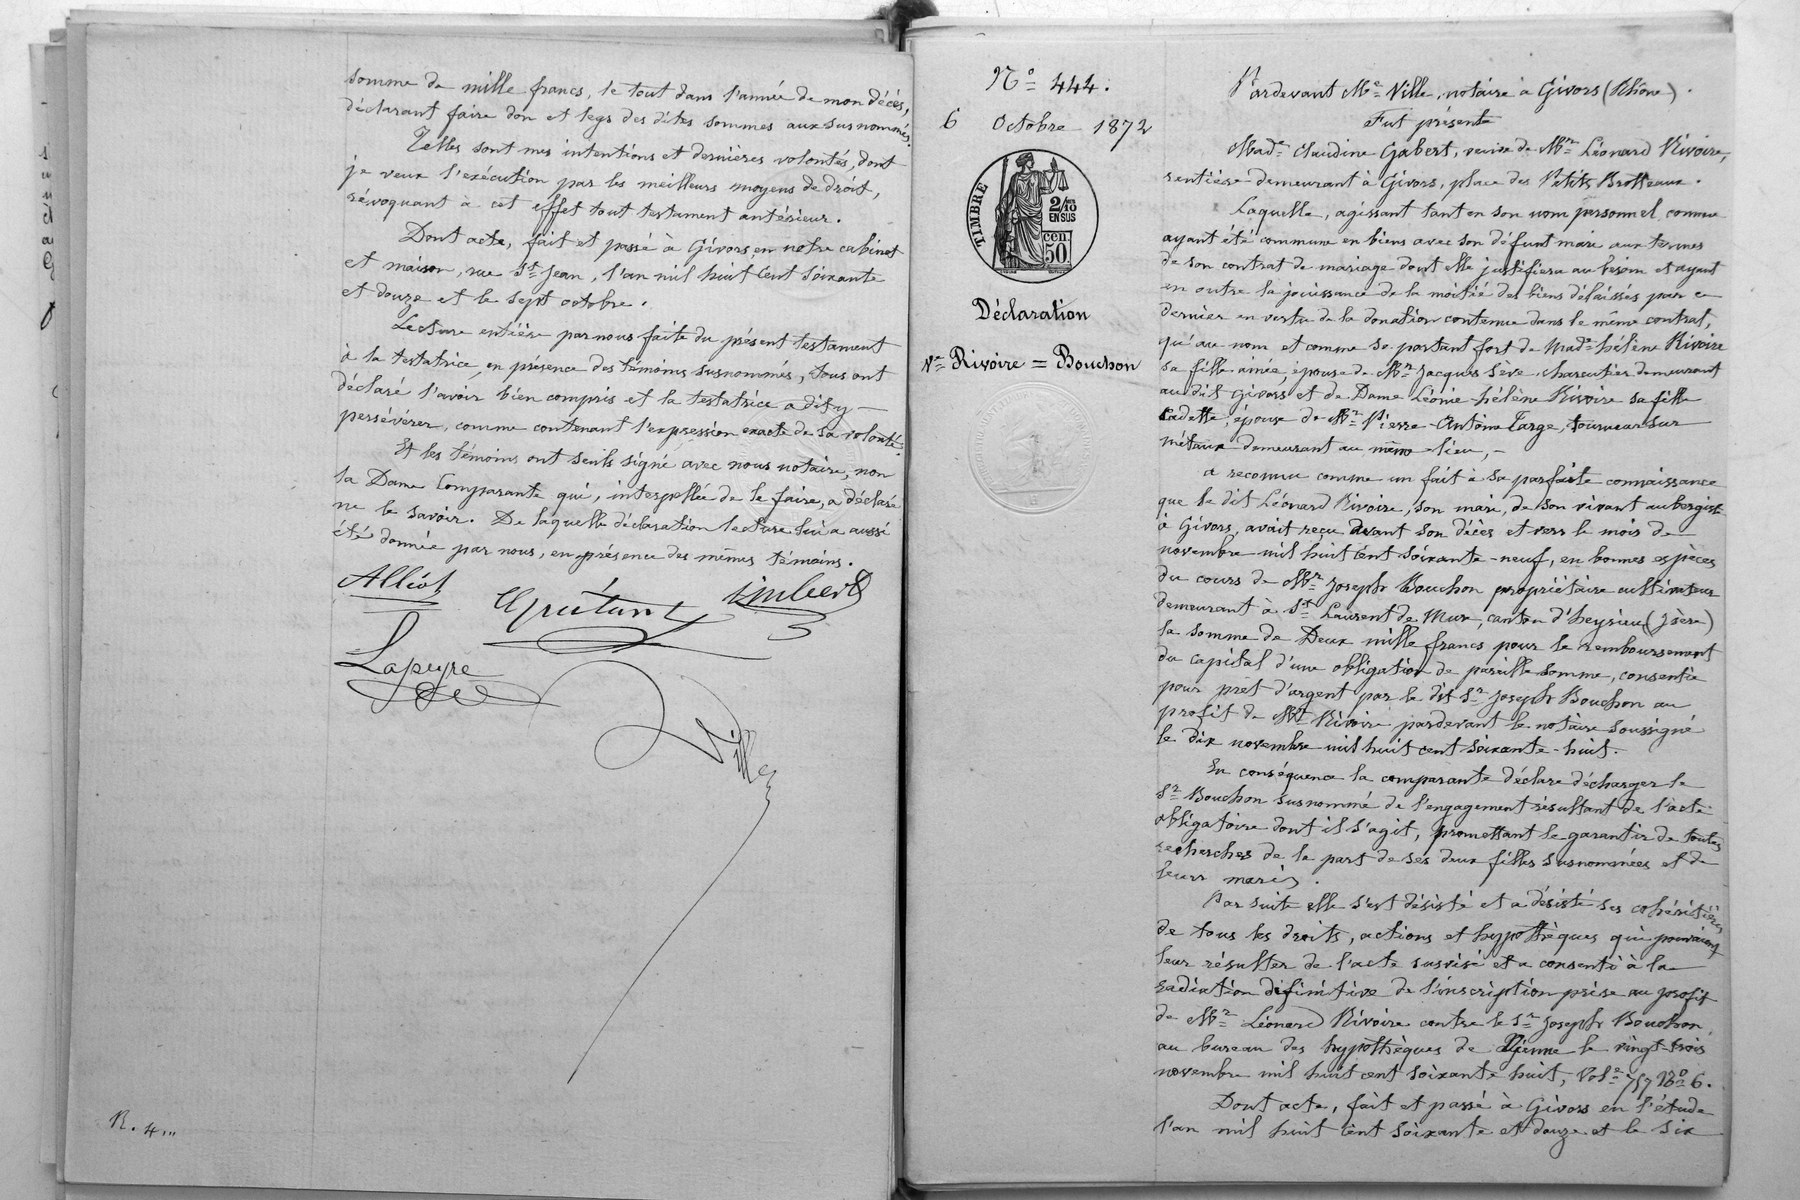 somme de mille francs, le tout dans l'année de mon décès,
déclarant faire don et legs des dites sommes aux susnommés.
Telles sont mes intentions et dernières volontés, dont
je veux l'exécution par les meilleurs moyens de droit,
révoquant à cet effet tout testament antérieur.
Dont acte, fait et passé à Givors, en notre cabinet
et maison, rue St Jean, l'an mil huit cent soixante
et douze et le sept octobre.
Lecture entière par nous faite du présent testament
à la testatrice, en présence des témoins susnommés, tous ont
déclaré l'avoir bien compris et la testatrice a dit y
persévérer, comme contenant l'expression exacte de sa volonté.
Et les témoins ont seuls signé avec nous notaire, non
la Dame Comparante qui, interpellée de le faire, a déclaré
ne le savoir. De laquelle déclaration lecture lui a aussi
été donnée par nous, en présence des mêmes témoins.
Alliot
Imbert
Lapeyre
Ville
R. 4
No 444.
6 Octobre 1872
TIMBRE
2/10
EN SUS
cen.
50
Déclaration
Ve Rivoire = Bouchon
Pardevant Me Ville, notaire à Givors (Rhône).
Fut présente
Made Claudine Gabert, veuve de Mr Léonard Rivoire,
rentière demeurant à Givors, place des Petits Brotteaux.
Laquelle, agissant tant en son nom personnel, comme
ayant été commune en biens avec son défunt mari aux termes
de son contrat de mariage dont elle justifiera au besoin et ayant
en outre la jouissance de la moitié des biens délaissés par ce
dernier en vertu de la donation contenue dans le même contrat,
qu'au nom et comme se portant fort de Made hélène Rivoire
sa fille ainée, épouse de Mr Jacques Sève, charcutier demeurant
au dit Givors et de Dame Léonie-hélène Rivoire sa fille
cadette, épouse de Mr Pierre-Antoine Targe, tourneur sur
métaux demeurant au même lieu, -
a reconnu comme un fait à sa parfaite connaissance
que le dit Léonard Rivoire, son mari, de son vivant aubergiste
à Givors, avait reçu avant son décès et vers le mois de
novembre mil huit cent soixante-neuf, en bonnes espèces
du cours de Mr Joseph Bouchon propriétaire cultivateur
demeurant à St Laurent de Mure, canton d'heyrieu (Isère)
la somme de Deux mille francs pour le remboursement
du capital d'une obligation de pareille somme, consentie
pour prêt d'argent par le dit Sr Joseph Bouchon au
profit de Mr Rivoire pardevant le notaire soussigné
le dix novembre mil huit cent soixante-huit.
En conséquence la comparante déclare décharger le
Sr Bouchon susnommé de l'engagement résultant de l'acte
obligatoire dont il s'agit, promettant le garantir de toutes
recherches de la part de ses deux filles susnommées et de
leurs maris.
Par suite elle s'est désisté et a désisté ses cohéritières
de tous les droits, actions et hypothèques qui pouvaient
leur résulter de l'acte susvisé et a consenti à la
radiation définitive de l'inscription prise au profit
de Mr Léonard Rivoire contre le Sr Joseph Bouchon,
au bureau des hypothèques de Vienne le vingt-trois
novembre mil huit cent soixante huit, Vole 757 No 6.
Dont acte, fait et passé à Givors en l'étude
l'an mil huit cent soixante et douze et le six